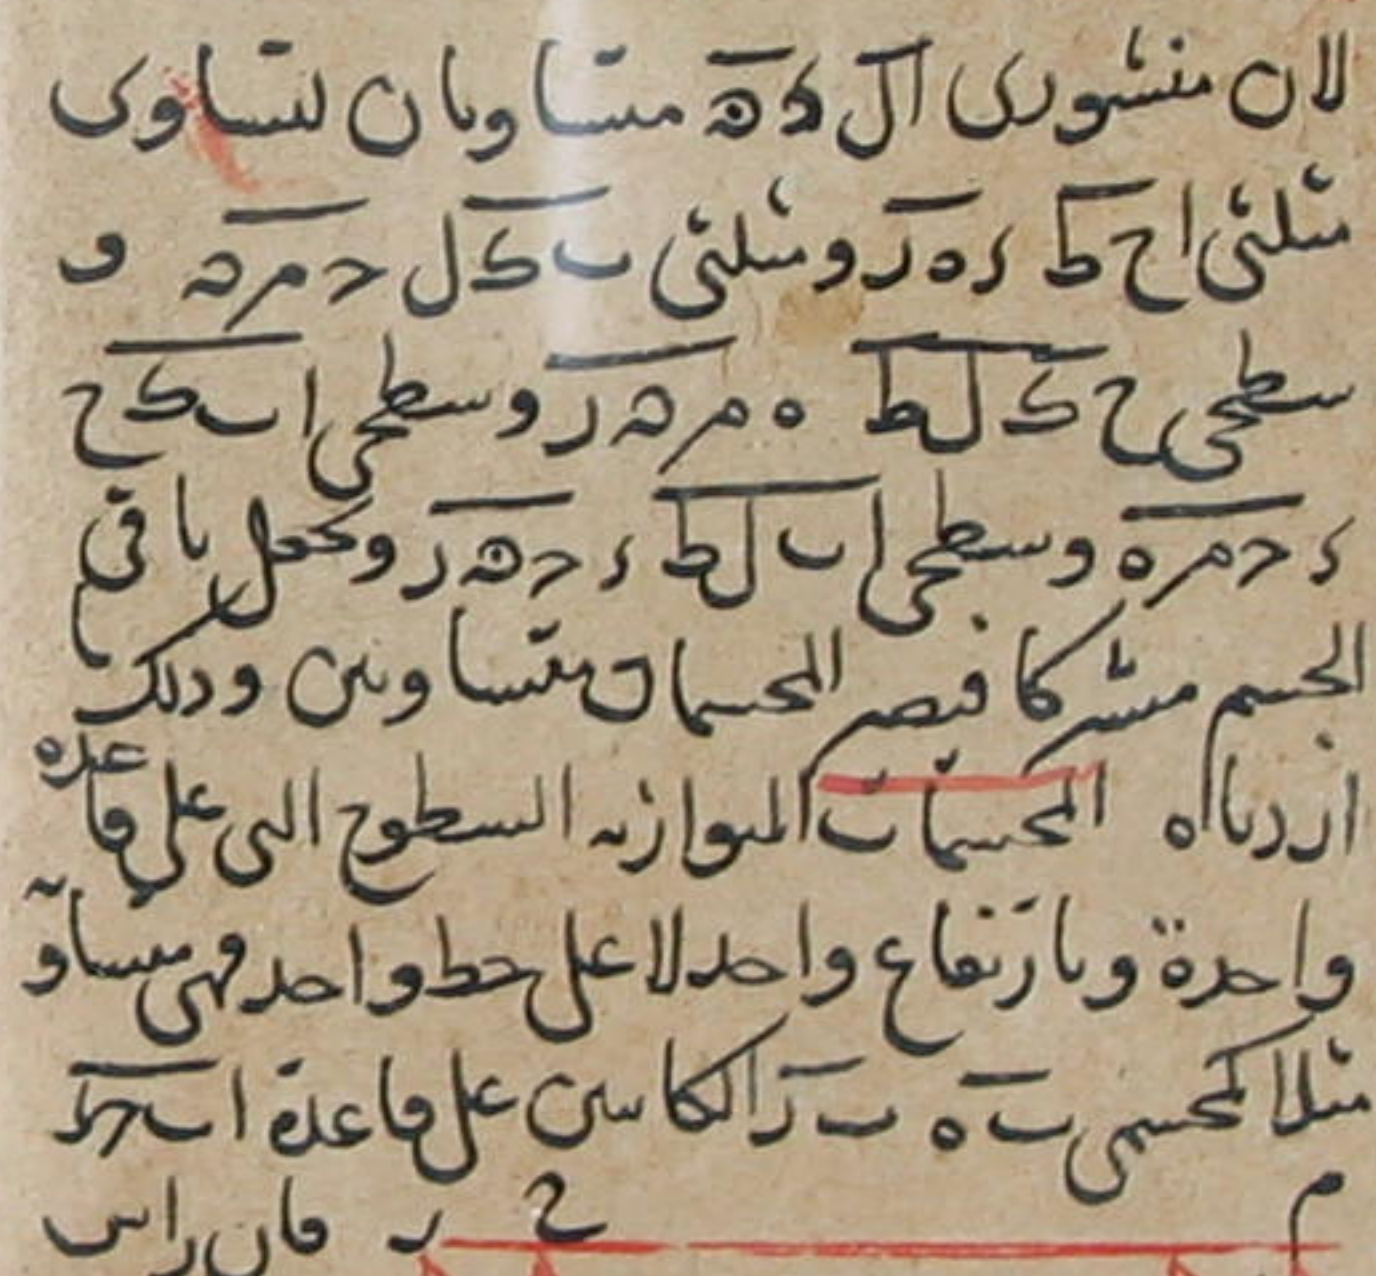 لان منشوری ا ل ک ه متساویان لتساوی
مثلثی ا ح ط د ه ر و مثلثی ب ک ل ح م ں و
سطحی ح ک ل ط ه م ں ر و سطحی ا ب ک ح
د ح م ه و سطحی ا ب ل ط د ح ں ر و نجعل باقی
الجسم مشترکا فیصیر المجسمان متساویین وذلک
اردناه المجسمات المتوازیه السطوح التی علی قاعده
واحدة وبارتفاع واحد لا علی خط واحد فهی متساویة
مثلا کمجسمی ب ه ب ر الکائنین علی قاعدة ا ب ح ط
م ح ر فان راس